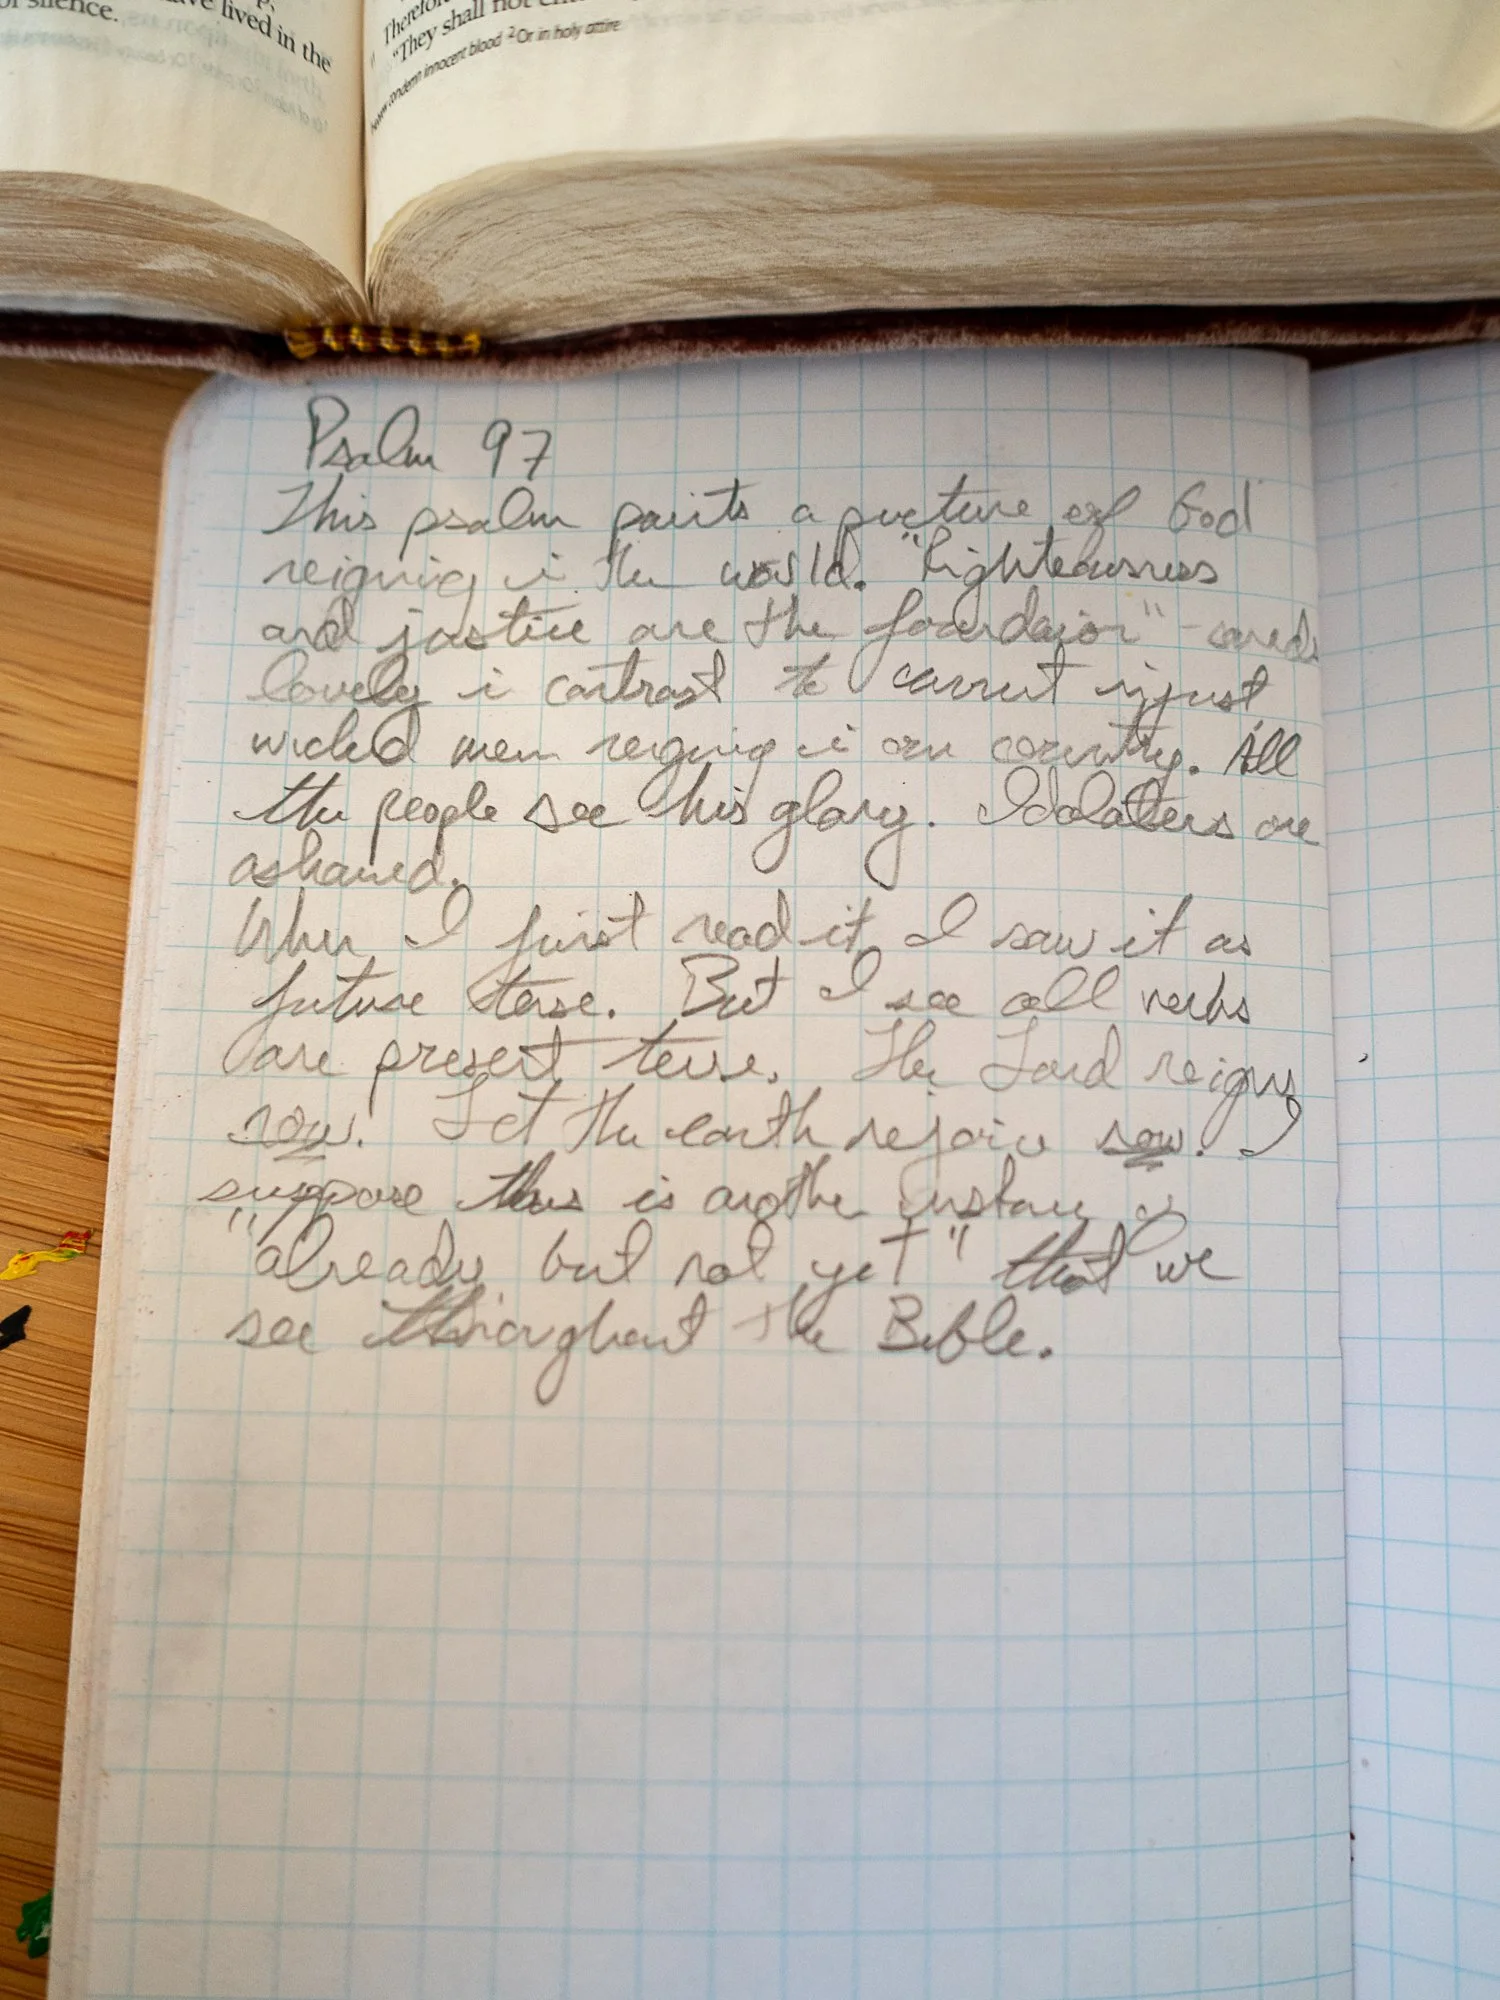 of silence.
have lived in the
Therefore
"They shall not
condemn innocent blood ²Or in holy attire
Psalm 97
This psalm paints a picture of God
reigning in the world. "Righteousness
and justice are the foundation" - sounds
lovely in contrast to current unjust
wicked men reigning in our country. All
the people see his glory. Idolaters are
ashamed.
When I first read it, I saw it as
future tense. But I see all verbs
are present tense. The Lord reigns
now. Let the earth rejoice now. I
suppose this is another instance of
"already but not yet" that we
see throughout the Bible.